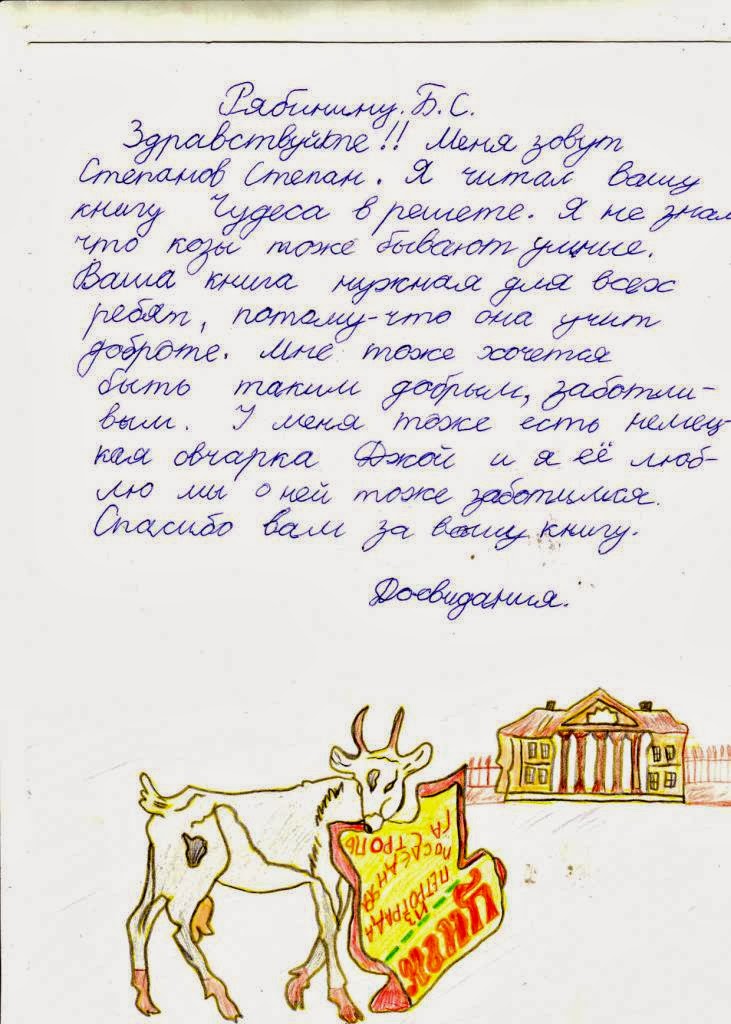 Рябинину. Б. С.
Здравствуйте!! Меня зовут
Степанов Степан. Я читал вашу
книгу Чудеса в решете. Я не знал
что козы тоже бывают умные.
Ваша книга нужная для всех
ребят, потому-что она учит
доброте. Мне тоже хочется
быть таким добрым, заботли-
вым. У меня тоже есть немец-
кая овчарка Джой и я её люб-
лю мы о ней тоже заботимся.
Спасибо вам за вашу книгу.
Досвидания.
ЦИРК
ИЗ
ПЕТРОГРАДА
ПОСЛЕДНЯЯ
ГАСТРОЛЬ